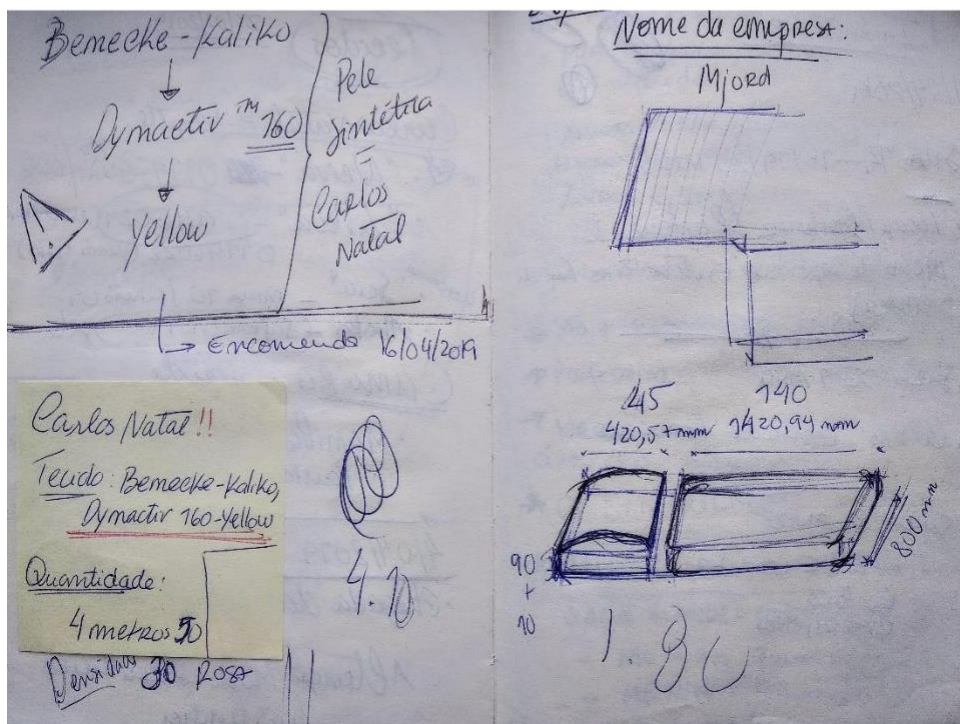 Bemecke-Kaliko
Dymactiv™ 160
Yellow
Pele
Sintética
Carlos
Natal
Encomenda 16/04/2019
Carlos Natal!!
Tecido: Bemecke-Kaliko,
Dymactiv 160-Yellow
Quantidade:
4 metros 50
Densidade 30 Rosa
4.10
Nome da empresa:
Mjord
45 140
420,57mm 1420,94mm
800mm
90
+
10
1.80